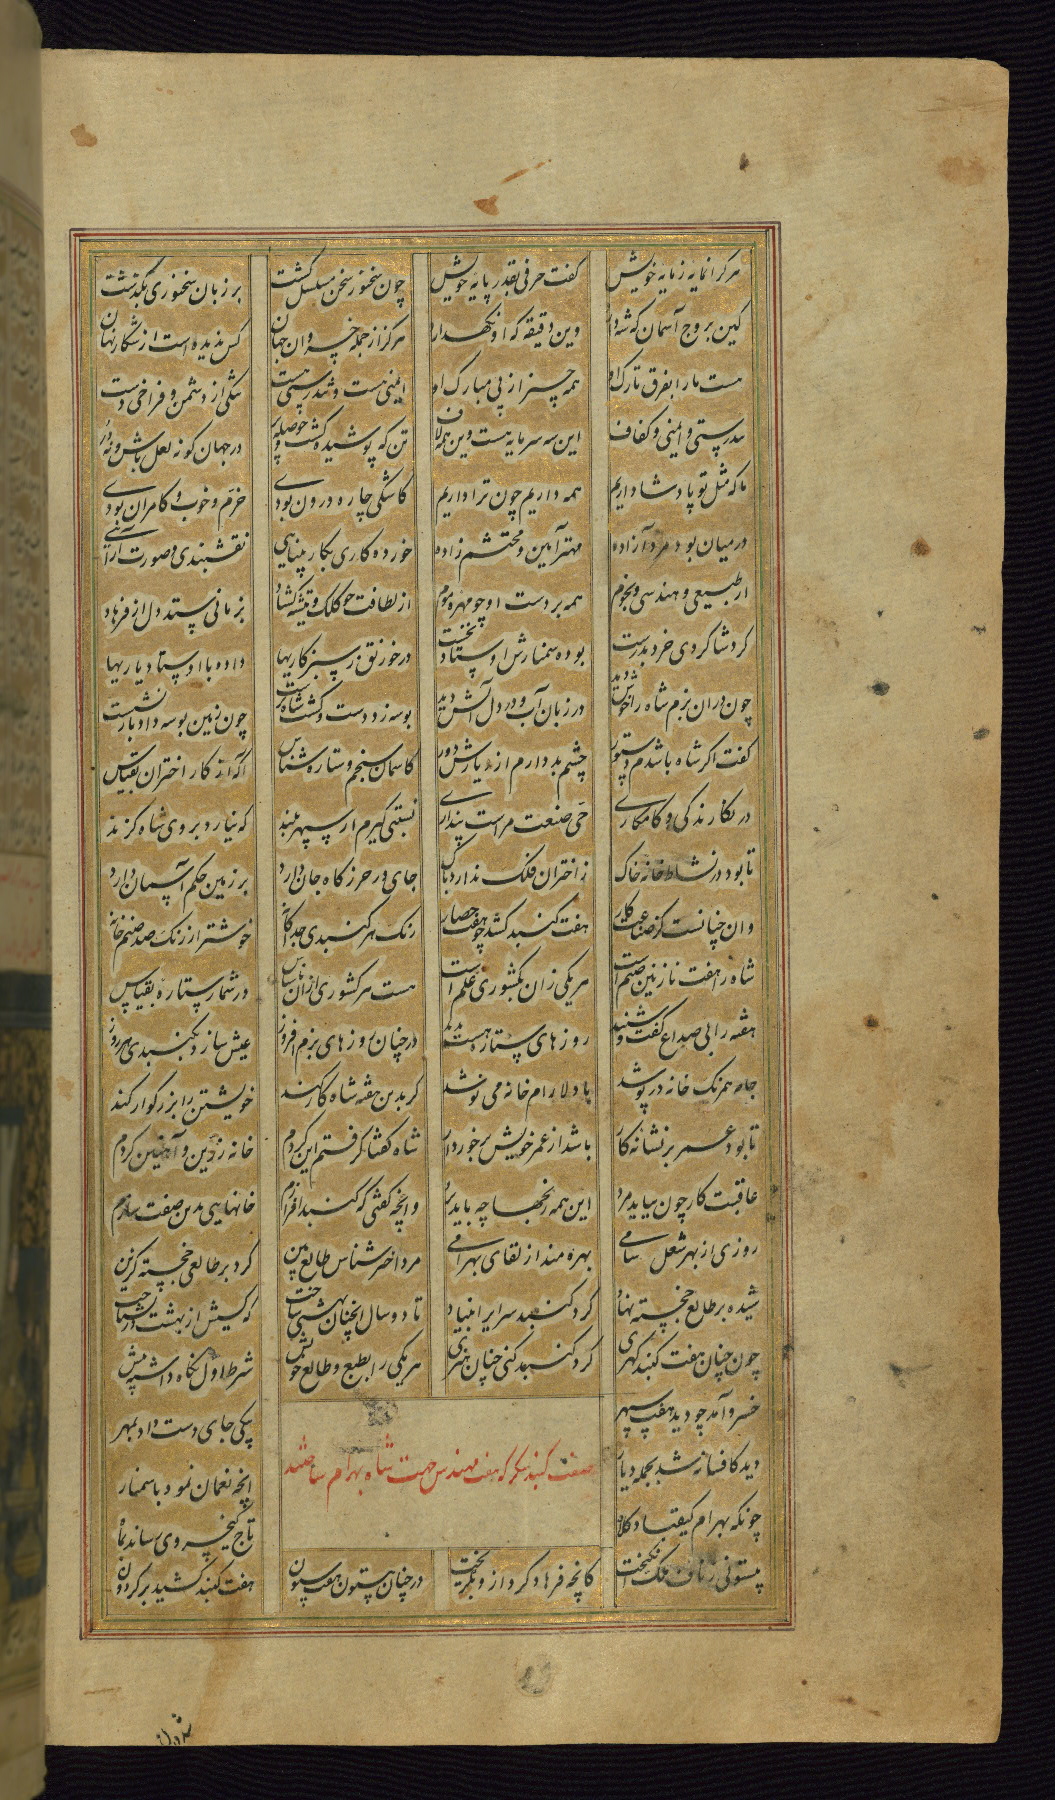 هر گرانمایه ز مایه خویش گفت حرفی بقدر پایه خویش چون سخنور سخن مسلسل گشت بر زبان سخنوری بگذشت
کین بروج آسمان که شه دارد وین دقیقه که او نگهدارد هرگز از جمله خسروان جهان کس ندیده است از شکار نهان
هست ما را بفرق تارک او همه چیز از پی مبارک او ایمنی هست و تندرستی هست تنگی از دشمن و فراخی دست
تندرستی و ایمنی و کفاف این سه سرمایه هست وین همه لاف تن که پوشیده گشت و حوصله پر در جهان گو نه لعل باش و نه در
ما که مثل تو پادشا داریم همه داریم چون ترا داریم کاشکی چاره درون بودی خرم و خوب و کامران بودی
در میان بود مرد آزاده مهتر آیین و محتشم زاده خورده کاری بکار بنایی نقشبندی و صورت آرائی
از طبیعی و هندسی و نجوم همه بر دست او چو مهره موم از لطافت چو کلک و تیشه گشاد بزمانی ستد دل از فرهاد
کرد شاگردی خرد بدرست بوده سمنارش اوستاد نخست در خورنق ز سبزکاریها داده با اوستاد یاریها
چون در آن بزم شاه را خوش دید در زبان آب و در دل آتش دید بوسه زد دست و گشت شاه پرست چون زمین بوسه داد باز نشست
گفت اگر شاه باشدم دستور چشم بد دارم از دیارش دور کاسمان سنجم و ستاره شناس آگه از کار اختران بقیاس
در نگارندگی و کامکاری حی صنعت مراست پنداری نسبتی گیرم از سپهر بلند که نیارد بروی شاه گزند
تا بود در نشاط خانه خاک ز اختران فلک ندارد باک جای در حرز گاه جان دارد بر زمین حکم آسمان دارد
وان چنانست کز هفت گنبد کشد چو هفت حصار رنگ هر گنبدی جداگانه خوشتر از رنگ صد صنم خانه
شاه را هفت نازنین صنم است هر یکی زان بکشوری علم است هست هر کشوری از آن اساس در شمار ستاره بقیاس
هفته را بی صداع گفت و شنید روزهای ستاره هست پدید در چنان روزهای بزم افروز عیش سازد بگنبدی هر روز
جامه همرنگ خانه در پوشد با دلارام خانه می نوشد گر بدین هفته شاه کار کند خویشتن را بزرگوار کند
تا بود عمر بر نشانه کار باشد از عمر خویش برخوردار شاه گفتا گرفتم این کردم خانه زرین و آهنین کردم
عاقبت کار چون بباید مرد این همه رنجها چه باید برد وانچه گفتی که گنبد افرازم خانهایی بدین صفت سازم
روزی از بهر شغل سامی بهره مند از لقای بهرامی مرد اختر شناس طالع بین کرد بر طالعی خجسته گزین
شیده بر طالع خجسته نهاد کرد گنبد سرای را بنیاد تا دو سال آنچنان بهشتی ساخت که کسش از بهشت در نشناخت
چون چنان هفت گنبد گهری کرد گنبد کنی چنان هنری هر یکی را بطبع و طالع خویش شرط اول نگاه داشته پیش
خسرو آمد چو دید هفت سپهر یکی جای دست داد بمهر
دید کافسانه شد بجمله دیار آنچه نعمان نمود با سمنار
چونکه بهرام کیقباد کلاه تاج کیخسروی رساند بماه
صفت گنبد که مهندس جهت شاه بهرام ساختند
بیستونی ز ناف ملک انگیخت کانچه فرهاد کرد ازو بگریخت در چنان بیستون هفت ستون هفت گنبد کشید بر گردون